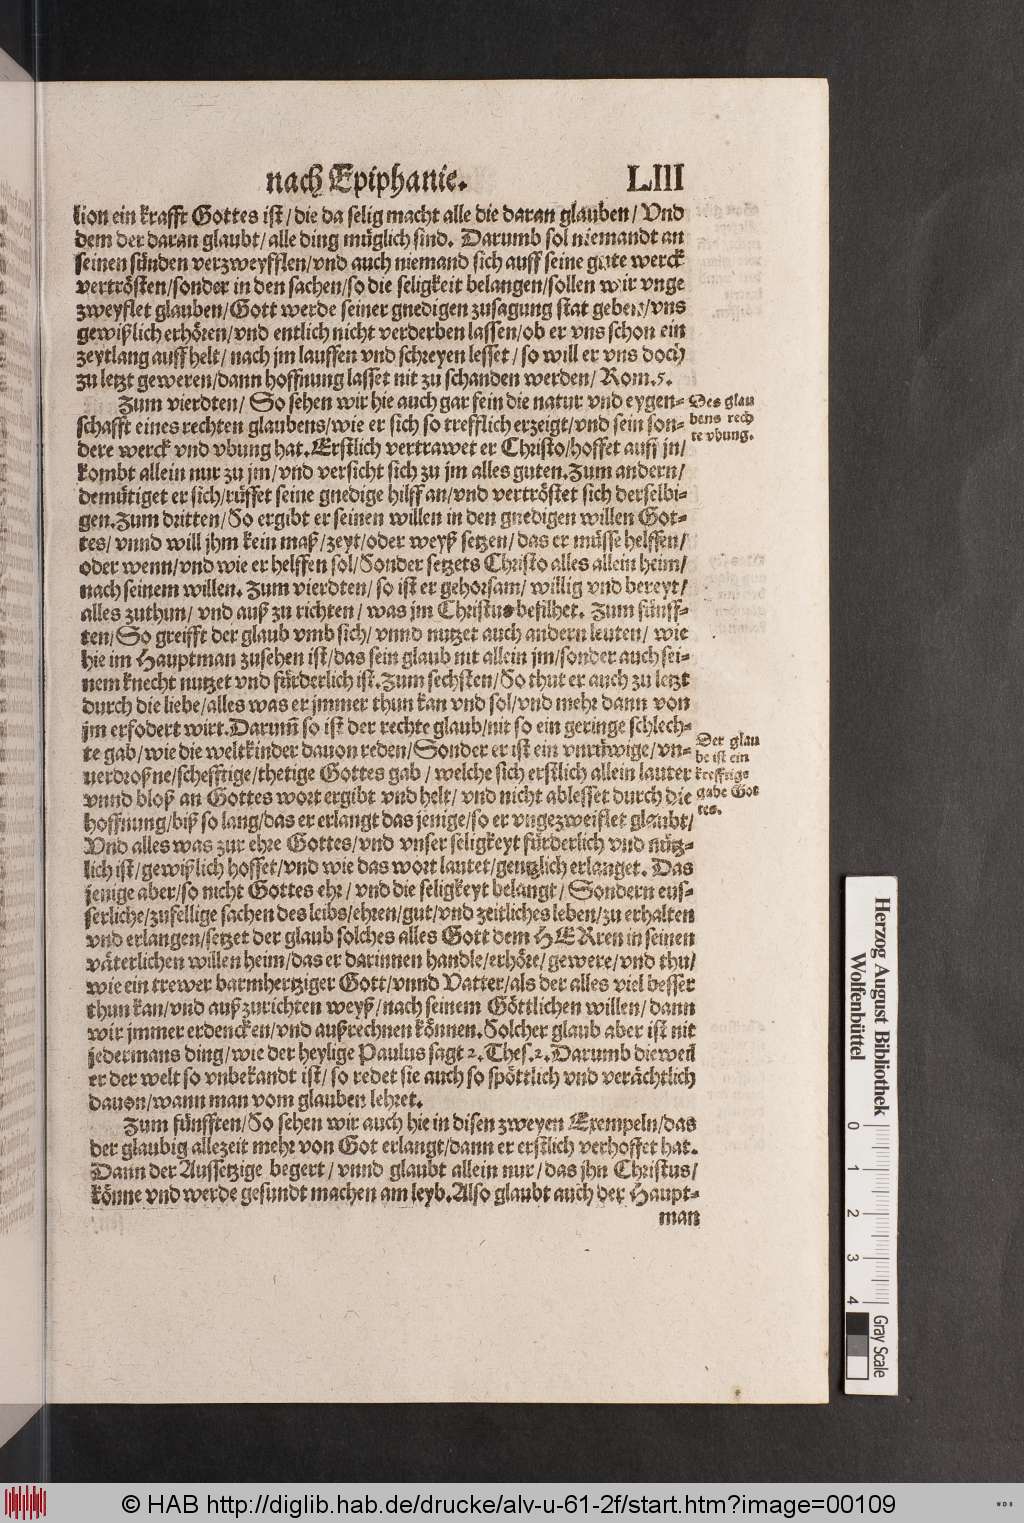 nach Epiphanie. LIII
lion ein krafft Gottes ist/ die da selig macht alle die daran glauben/ Vnd
dem der daran glaubt/ alle ding müglich sind. Darumb sol niemandt an
seinen sünden verzweyfflen/vnd auch niemand sich auff seine gute werck
vertrösten/sonder in den sachen/so die seligkeit belangen/sollen wir vnge
zweyflet glauben/Gott werde seiner gnedigen zusagung stat geben/vns
gewißlich erhören/vnd entlich nicht verderben lassen/ob er vns schon ein
zeytlang auff helt/ nach jm lauffen vnd schreyen lesset/ so will er vns doch
zu letzt geweren/dann hoffnung lasset nit zu schanden werden/ Rom.5.
Zum vierdten/ So sehen wir hie auch gar fein die natur vnd eygen-
schafft eines rechten glaubens/wie er sich so trefflich erzeigt/vnd sein son-
dere werck vnd vbung hat. Erstlich vertrawet er Christo/hoffet auff jn/
kombt allein nur zu jm/vnd versicht sich zu jm alles guten. Zum andern/
demütiget er sich/rüffet seine gnedige hilff an/vnd vertröstet sich derselbi-
gen. Zum dritten/ So ergibt er seinen willen in den gnedigen willen Got-
tes/ vnnd will jhm kein maß/zeyt/oder weyß setzen/ das er müsse helffen/
oder wenn/vnd wie er helffen sol/Sonder setzets Christo alles allein heim/
nach seinem willen. Zum vierdten/ so ist er gehorsam/ willig vnd bereyt/
alles zuthun/ vnd auß zu richten/ was jm Christus befilhet. Zum fünff-
ten/So greifft der glaub vmb sich/ vnnd nutzet auch andern leuten/ wie
hie im Hauptman zusehen ist/das sein glaub nit allein jm/sonder auch sei-
nem knecht nutzet vnd fürderlich ist. Zum sechsten/ So thut er auch zu letzt
durch die liebe/alles was er jmmer thun kan vnd sol/vnd mehr dann von
jm erfodert wirt. Darum̃ so ist der rechte glaub/nit so ein geringe schlech-
te gab/wie die weltkinder dauon reden/Sonder er ist ein vnrüwige/vn-
uerdroßne/schefftige/thetige Gottes gab/ welche sich erstlich allein lauter
vnnd bloß an Gottes wort ergibt vnd helt/ vnd nicht ablesset durch die
hoffnung/biß so lang/das er erlangt das jenige/so er vngezweiflet glaubt/
Vnd alles was zur ehre Gottes/vnd vnser seligkeyt fürderlich vnd nütz-
lich ist/gewißlich hoffet/vnd wie das wort lautet/gentzlich erlanget. Das
jenige aber/so nicht Gottes ehr/ vnd die seligkeyt belangt/ Sondern eus-
serliche/zufellige sachen des leibs/ehren/gut/vnd zeitliches leben/zu erhalten
vnd erlangen/setzet der glaub solches alles Gott dem HERren in seinen
väterlichen willen heim/das er darinnen handle/erhöre/gewere/vnd thu/
wie ein trewer barmhertziger Gott/vnnd Vatter/als der alles viel besser
thun kan/vnd auß zurichten weyß/nach seinem Göttlichen willen/ dann
wir jmmer erdencken/vnd außrechnen können. Solcher glaub aber ist nit
jedermans ding/wie der heylige Paulus sagt 2. Thes.2. Darumb dieweil
er der welt so vnbekandt ist/ so redet sie auch so spöttlich vnd verächtlich
dauon/wann man vom glauben lehret.
Zum fünfften/So sehen wir auch hie in disen zweyen Exempeln/das
der glaubig allezeit mehr von Got erlangt/dann er erstlich verhoffet hat.
Dann der Aussetzige begert/ vnnd glaubt allein nur/ das jhn Christus/
könne vnd werde gesundt machen am leyb. Also glaubt auch der Haupt-
man
Des glau
bens rech
te vbung.
Der glau
be ist ein
krefftige
gabe Got
tes.
Herzog August Bibliothek
Wolfenbüttel
0 1 2 3 4
Gray Scale
© HAB http://diglib.hab.de/drucke/alv-u-61-2f/start.htm?image=00109